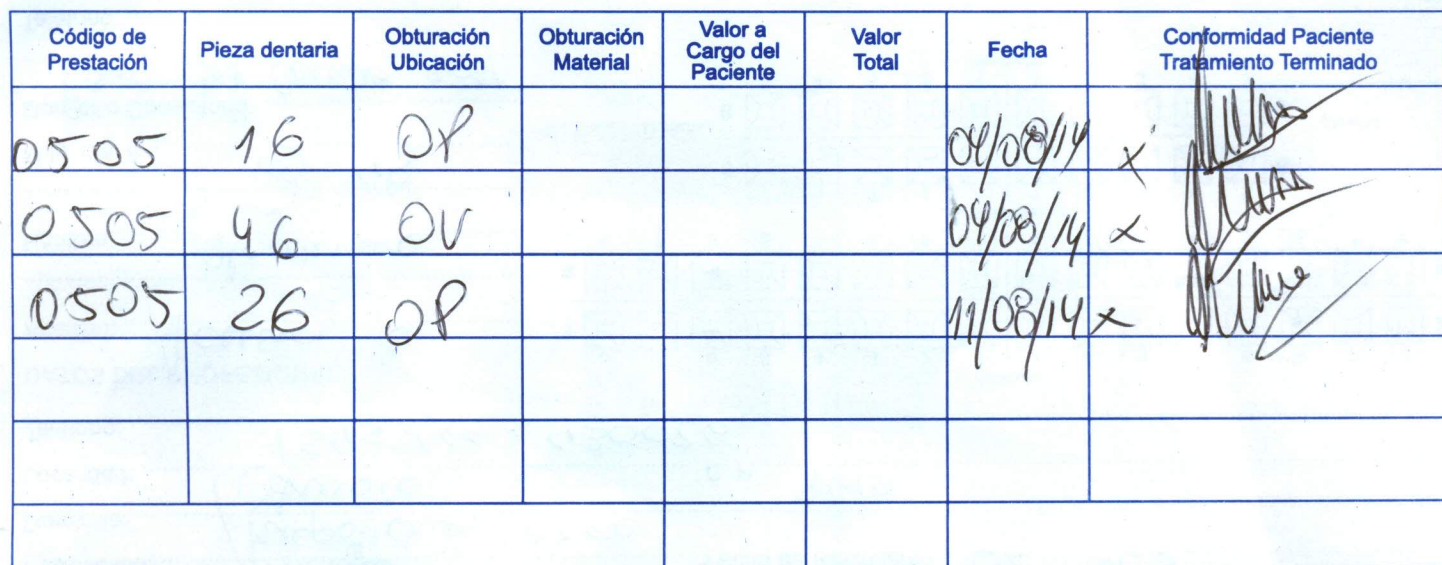 Código de Prestación Pieza dentaria Obturación Ubicación Obturación Material Valor a Cargo del Paciente Valor Total Fecha Conformidad Paciente Tratamiento Terminado
0505 16 OP 04/08/14 x
0505 46 OV 04/08/14 x
0505 26 OP 11/08/14 x